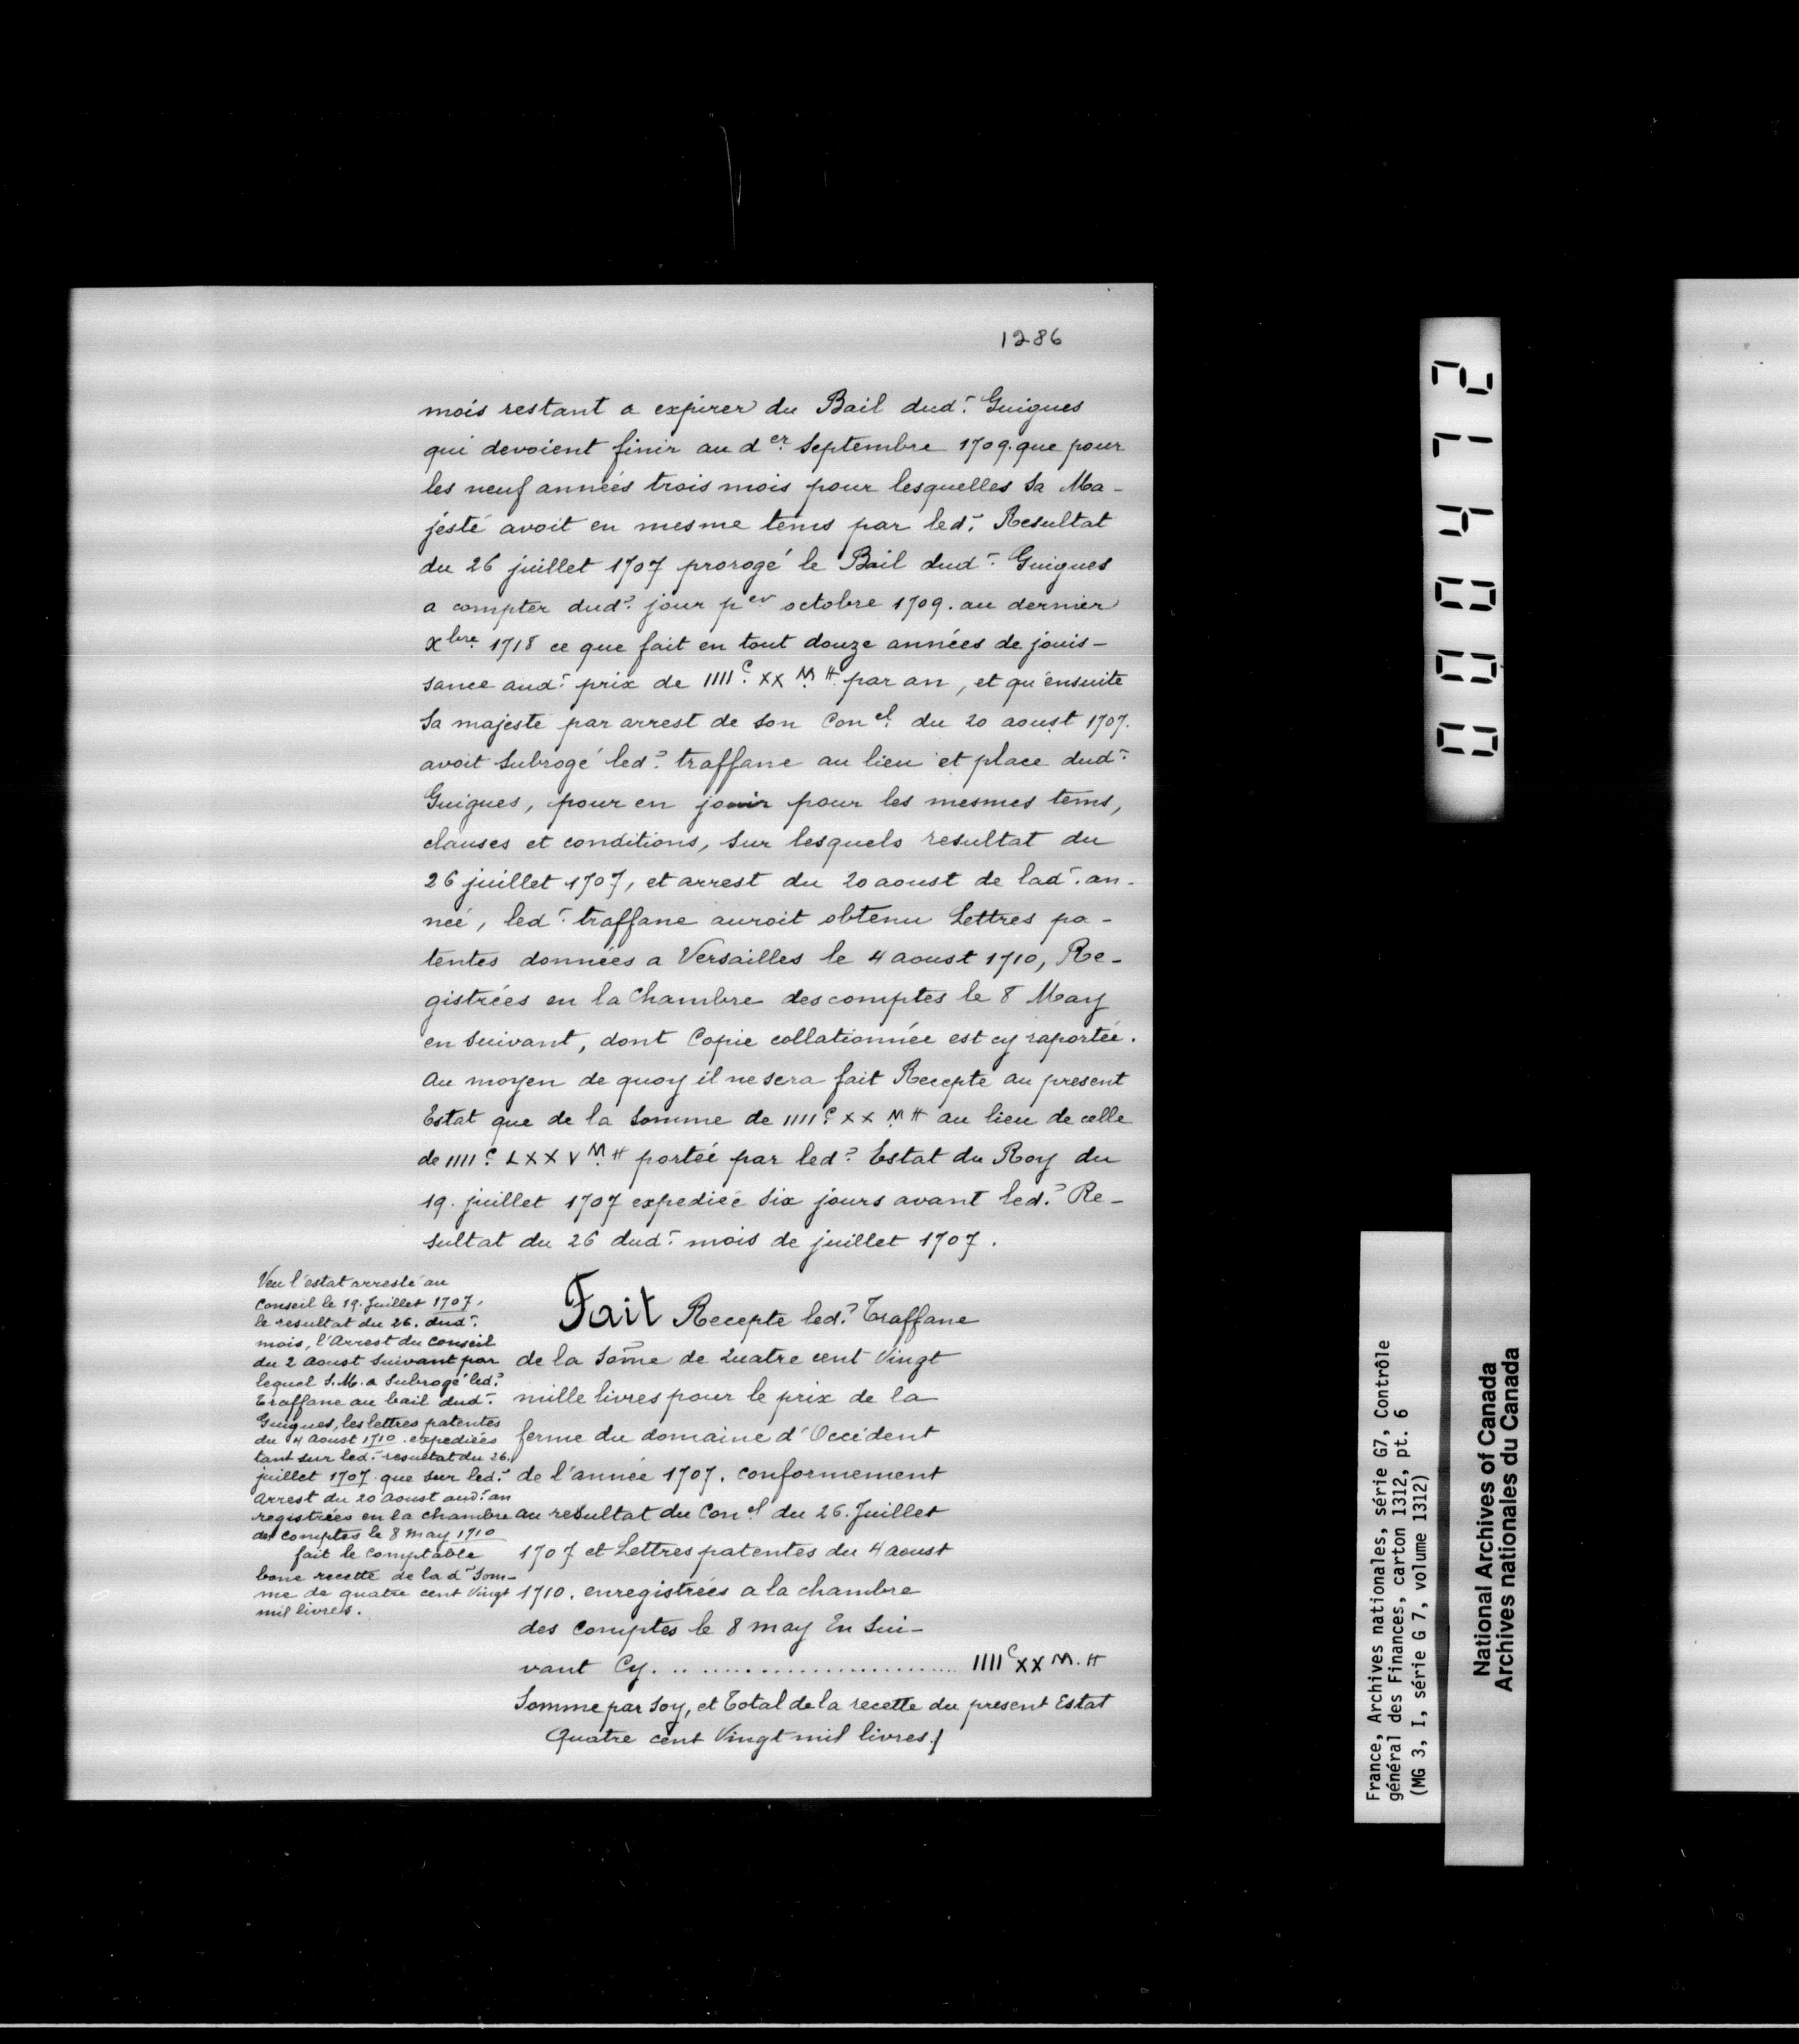 1286
mois restant a expirer du Bail dud.t Guigues
qui devoient finir au d.er Septembre 1709. que pour
les neuf années trois mois pour lesquelles Sa Ma-
jesté avoit en mesme tems par led.t Resultat
du 26 juillet 1707 prorogé le Bail dud.t Guigues
a compter dud.t jour p.er octobre 1709. au dernier
Xbre 1718 ce que fait en tout douze années de jouis-
sance aud.t prix de IIIIC. XX M. ₶ par an, et qu'ensuite
Sa majesté par arrest de son Con.el du 20 aoust 1707.
avoit Subrogé led.t traffane au lieu et place dud.t
Guigues, pour en jouir pour les mesmes tems,
clauses et conditions, sur lesquels resultat du
26 juillet 1707, et arrest du 20 aoust de lad.t an-
neé, led.t traffane auroit obtenu Lettres pa-
tentes données a Versailles le 4 aoust 1710, Re-
gistrées en la Chambre des comptes le 8 May
en suivant, dont Copie collationnée est cy raportée.
Au moyen de quoy il ne sera fait Recepte au present
Estat que de la Somme de IIIIC. XX M. ₶ au lieu de celle
de IIIIC. LXXV M. ₶ porteé par led.t Estat du Roy du
19. juillet 1707 expedieé Six jours avant led.t Re-
sultat du 26 dud.t mois de juillet 1707.
Veu l'estat arresté au
Conseil le 19. Juillet 1707,
le resultat du 26. dud.t
mois, l'Arrest du Conseil
du 2 Aoust Suivant par
lequel S.M. a Subrogé led.t
Traffane au bail dud.t
Guigues, les lettres patentes
du 4 Aoust 1710. expediées
tant sur led.t resultat du 26.
juillet 1707 que sur led.t
Arrest du 20 Aoust aud.t an
registrées en la chambre
des comptes le 8 may 1710
fait le Comptable
bone recette de la d.t Som-
me de quatre cent Vingt
mil livres.
Fait Recepte led.t Traffane
de la Som̃e de Quatre cent Vingt
mille livres pour le prix de la
ferme du domaine d'Occident
de l'année 1707. conformement
au resultat du Con.el du 26. Juillet
1707 et Lettres patentes du 4 aoust
1710. enregistrées a la chambre
des Comptes le 8 may En Sui-
vant Cy........................... IIIIC XX M. ₶
Somme par Soy, et Total de la recette du present Estat
Quatre cent Vingt mil livres./
000412
France, Archives nationales, série G7, Contrôle
général des Finances, carton 1312, pt. 6
(MG 3, I, série G 7, volume 1312)
National Archives of Canada
Archives nationales du Canada